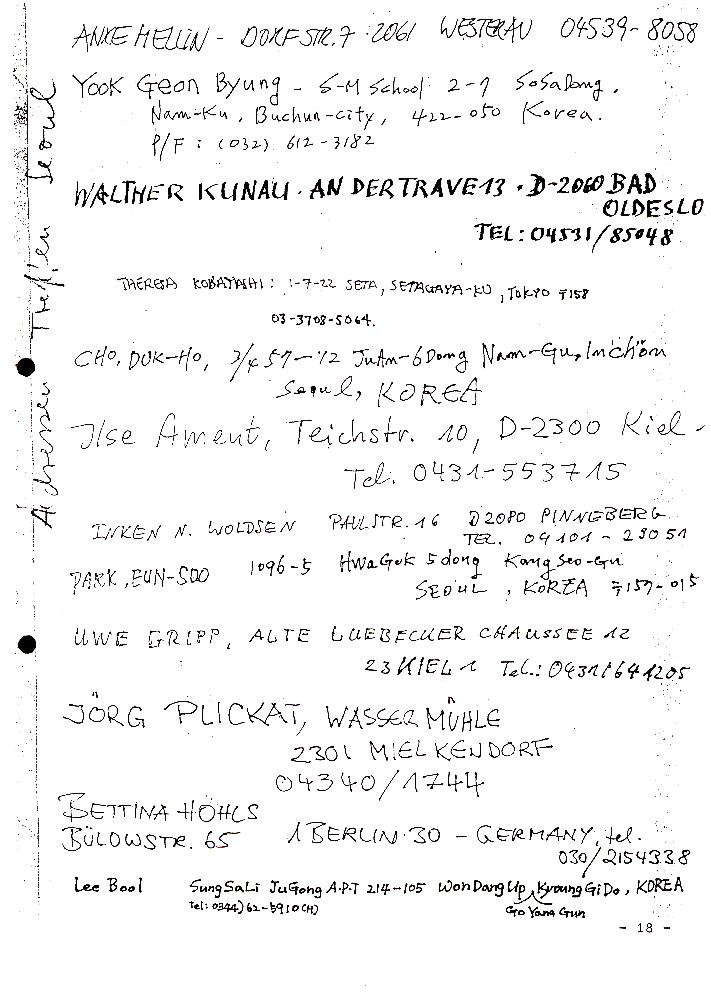 ANKE MELLIN - DORFSTR. 7 · 2061 WESTERAU 04539-8058
YOOK GEON Byung - S-M School 2-1 SoSaDong,
Nam-Ku, Buchun-city, 422-050 Korea.
P/F : (032) 612-3182
WALTHER KUNAU · AN DER TRAVE 13 · D-2060 BAD
OLDESLO
TEL: 04531/85048
THERESA KOBAYASHI: 1-7-22 SETA, SETAGAYA-KU, TOKYO 〒158
03-3708-5064.
CHO, DUK-HO, 57-12 JuAn-6Dong Nam-Gu, Inchŏn
Seoul, KOREA
Ilse Ament, Teichstr. 10, D-2300 Kiel -
Tel. 0431-553715
INKEN N. WOLDSEN PAULSTR. 16 D2080 PINNEBERG
TEL. 04101 - 23051
PARK, EUN-SOO 1096-5 HwaGok 5dong Kang Seo-Gu
SEOUL, KOREA 〒157-015
UWE GRIPP, ALTE LUEBECKER CHAUSSEE 12
23 KIEL 1 Tel.: 0431/641205
JÖRG PLICKAT, WASSERMÜHLE
2301 MIELKENDORF
04340/1744
BETTINA HÖHLS
BÜLOWSTR. 65 1 BERLIN 30 - GERMANY, tel.
030/2154338
Lee Bool SungSaLi JuGong A.P.T 214-105 WonDangUp, KyoungGiDo, KOREA
Tel: 0344) 62-5910 (H) Go Yang Gun
- 18 -
Adressen Treffen Seoul